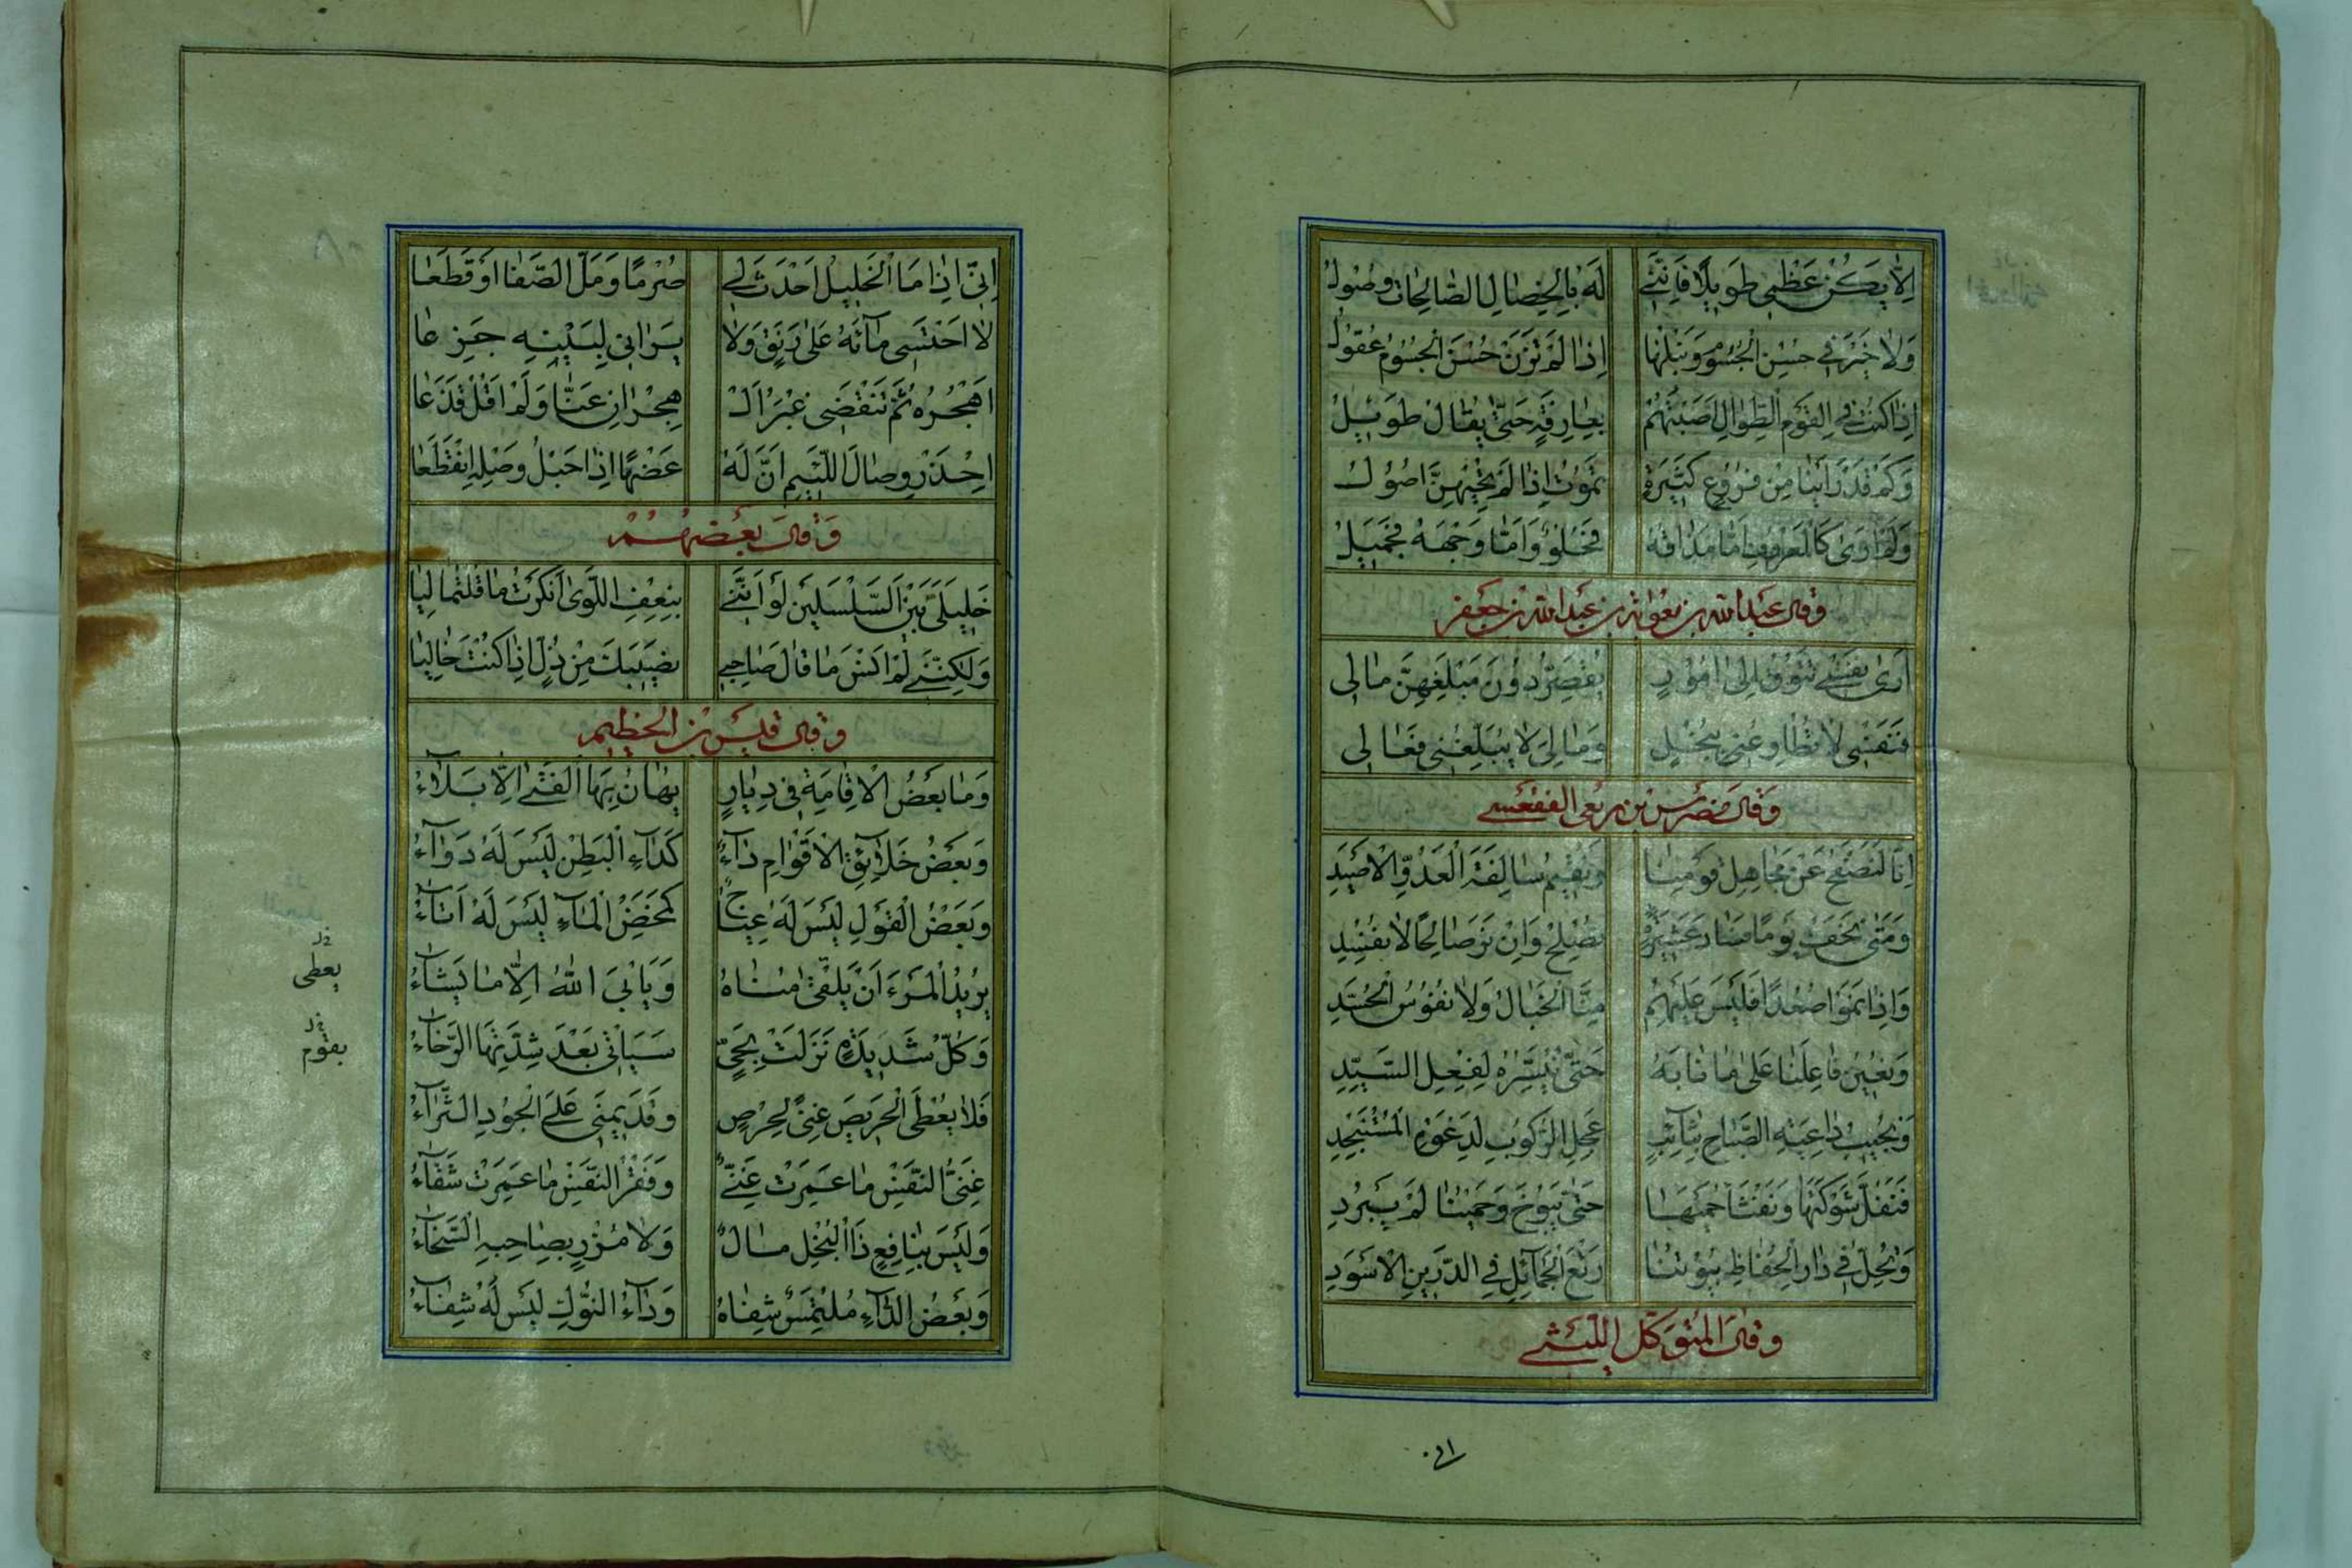 اِلّا يَكُنْ عَظْمِي طَوِيلًا فَاِنَّنِي لَهُ بِالْخِصَالِ الصَّالِحَاتِ وَصُولُ
وَلَا خَيْرَ فِي حُسْنِ الْجُسُومِ وَنُبْلِهَا اِذَا لَمْ تَزِنْ حُسْنَ الْجُسُومِ عُقُولُ
اِذَا كُنْتُ فِي الْقَوْمِ الطِّوَالِ اَصَبْتُهُمْ بِعَارِفَةٍ حَتَّى يُقَالَ طَوِيلُ
وَكَمْ قَدْ رَاَيْنَا مِنْ فُرُوعٍ كَثِيرَةٍ تَمُوتُ اِذَا لَمْ يُحْيِهِنَّ اُصُولُ
وَلَمْ اَرَى كَالْمَعْرُوفِ اَمَّا مَذَاقُهُ فَحُلْوٌ وَاَمَّا وَجْهُهُ فَجَمِيلُ
وقال عبدالله بن معوية بن عبدالله بن جعفر
اَرَى نَفْسِي تَتُوقُ اِلَى اُمُورٍ يُقَصِّرُ دُونَ مَبْلَغِهِنَّ مَالِي
فَنَفْسِي لَا تُطَاوِعُنِي بِبُخْلٍ وَمَالِيَ لَا يُبَلِّغُنِي فَعَالِي
وَقَالَ مضرس بن ربعى الفقعسي
اِنَّا لَنَصْفَحُ عَنْ مَجَاهِلِ قَوْمِنَا وَنُقِيمُ سَالِفَةَ الْعَدُوِّ الْاَصْيَدِ
وَمَتَى نَخَفْ يَوْمًا فَسَادَ عَشِيرَةٍ نُصْلِحْ وَاِنْ نَرَ صَالِحًا لَا نُفْسِدِ
وَاِذَا نَمَوْا صُعُدًا فَلَيْسَ عَلَيْهِمْ مِنَّا الْخَبَالُ وَلَا نُفُوسُ الْحُسَّدِ
وَنُعِينُ فَاعِلَنَا عَلَى مَا نَابَهُ حَتَّى نُيَسِّرَهُ لِفِعْلِ السَّيِّدِ
وَنُجِيبُ دَاعِيَةَ الصَّبَاحِ بِثَائِبٍ عَجِلِ الرُّكُوبِ لِدَعْوَةِ الْمُسْتَنْجِدِ
فَنَفُلُّ شَوْكَتَهَا وَنَفْثَأُ حَمْيَهَا حَتَّى تَبُوخَ وَحَمْيُنَا لَمْ يَبْرُدِ
وَتَحُلُّ فِي دَارِ الْحِفَاظِ بُيُوتُنَا رَتْعَ الْجَمَائِلِ فِي الدَّرِينِ الْاَسْوَدِ
وقال المتوكل الليثي
اِنِّي اِذَا مَا الْخَلِيلُ اَحْدَثَ لِي صُرْمًا وَمَلَّ الصَّفَا اَوْ قَطَعَا
لَا اَحْتَسِي مَاءَهُ عَلَى رَنَقٍ وَلَا يَرَانِي لِبَيْنِهِ جَزِعَا
اَهْجُرُهُ ثُمَّ تَنْقَضِي غُبَّرُ الْ هِجْرَانِ عَنَّا وَلَمْ اَقُلْ قَذَعَا
اِحْذَرْ وِصَالَ اللَّئِيمِ اَنَّ لَهُ عَضْهًا اِذَا حَبْلُ وَصْلِهِ انْقَطَعَا
وَقال بعضهم
خَلِيلَيَّ بَيْنَ السِّلْسِلَيْنِ لَوْ اَنَّنِي بِنَعْفِ اللَّوَى اَنْكَرْتُ مَا قُلْتُمَا لِيَا
وَلٰكِنَّنِي لَمْ اَنْسَ مَا قَالَ صَاحِبِي نَصِيبَكَ مِنْ ذُلٍّ اِذَا كُنْتَ خَالِيَا
وقال قيس بن الخطيم
وَمَا بَعْضُ الْاِقَامَةِ فِي دِيَارٍ يُهَانُ بِهَا الْفَتَى اِلَّا بَلَاءُ
وَبَعْضُ خَلَائِقِ الْاَقْوَامِ دَاءٌ كَدَاءِ الْبَطْنِ لَيْسَ لَهُ دَوَاءُ
وَبَعْضُ الْقَوْلِ لَيْسَ لَهُ عِنَاجٌ كَمَخْضِ الْمَاءِ لَيْسَ لَهُ اَتَاءُ
يُرِيدُ الْمَرْءُ اَنْ يَلْقَى مُنَاهُ وَيَأْبَى اللّٰهُ اِلَّا مَا يَشَاءُ
وَكُلُّ شَدِيدَةٍ نَزَلَتْ بِحَيٍّ سَيَاْتِي بَعْدَ شِدَّتِهَا الرَّخَاءُ
فَلَا يُعْطَى الْحَرِيصُ غِنًى لِحِرْصٍ وَقَدْ يَمْنَى عَلَى الْجُودِ الثَّرَاءُ
غِنَى النَّفْسِ مَا عَمِرَتْ غَنِيٌّ وَفَقْرُ النَّفْسِ مَا عَمِرَتْ شَقَاءُ
وَلَيْسَ بِنَافِعٍ ذَا الْبُخْلِ مَالٌ وَلَا مُزْرٍ بِصَاحِبِهِ السَّخَاءُ
وَبَعْضُ الدَّاءِ مُلْتَمَسٌ شِفَاهُ وَدَاءُ النُّوكِ لَيْسَ لَهُ شِفَاءُ
يعطى
بقوم